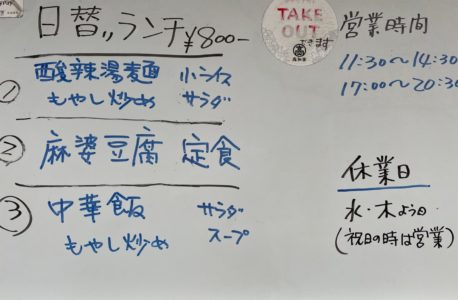 日替ランチ ¥800-
TAKE
OUT
できます
営業時間
11:30～14:30
17:00～20:30
① 酸辣湯麺 小ライス
もやし炒め サラダ
② 麻婆豆腐 定食
③ 中華飯 サラダ
もやし炒め スープ
休業日
水・木よう日
(祝日の時は営業)